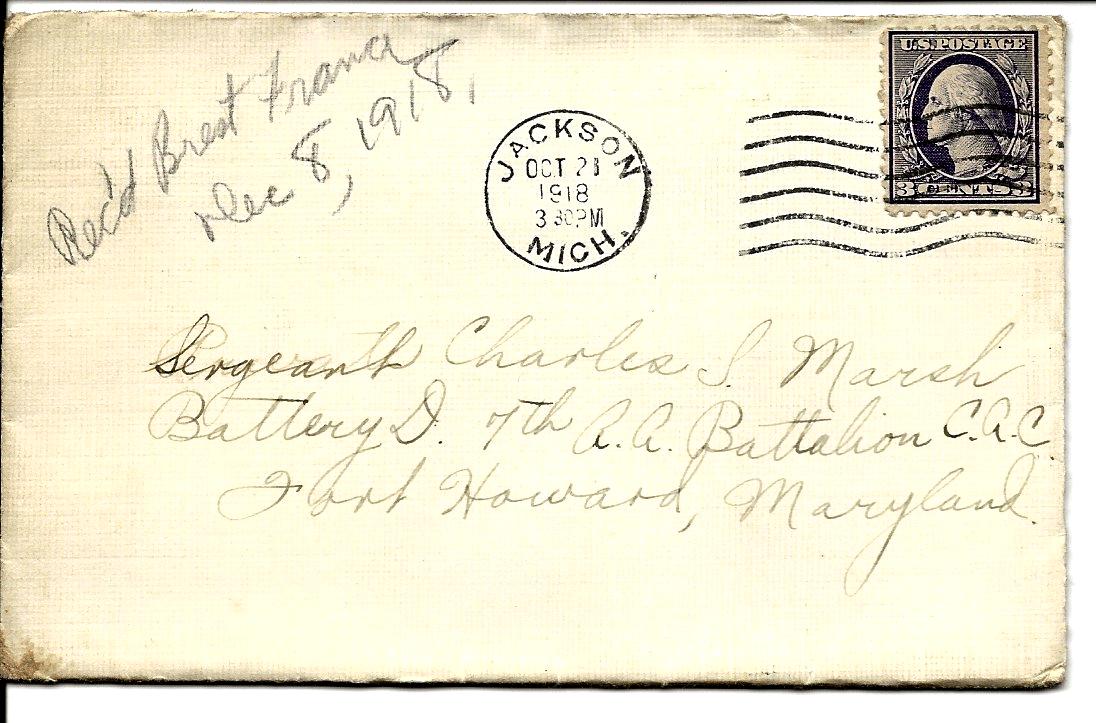 Rec'd Brest France
Dec 8, 1918,
JACKSON
OCT 21
1918
3 30PM
MICH.
U.S. POSTAGE
3 CENTS 3
Sergeant Charles S. Marsh
Battery D. 7th A.A. Battalion C.A.C.
Fort Howard, Maryland.